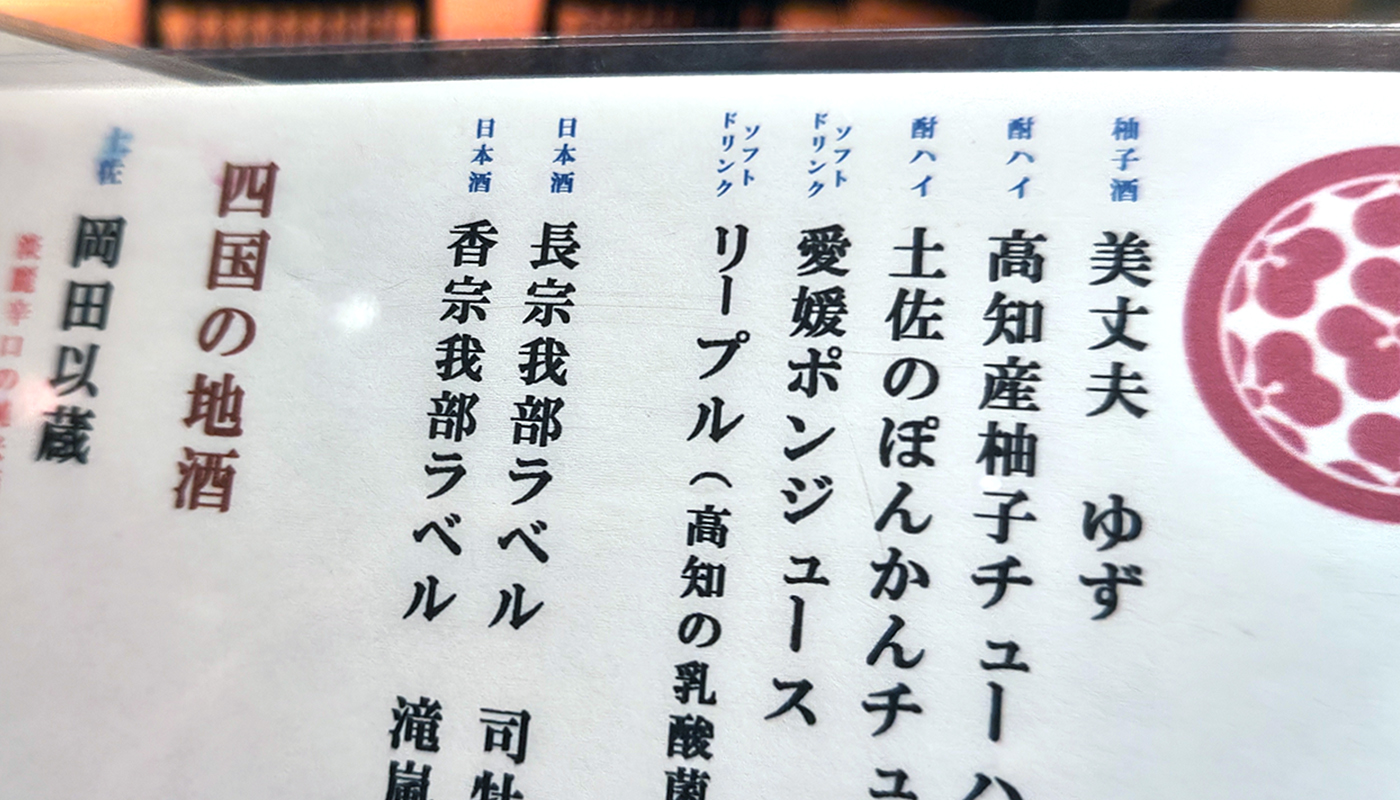 柚子酒 美丈夫 ゆず
酎ハイ 高知産柚子チューハ
酎ハイ 土佐のぽんかんチュ
ソフトドリンク 愛媛ポンジュース
ソフトドリンク リープル(高知の乳酸菌
日本酒 長宗我部ラベル 司牡
日本酒 香宗我部ラベル 滝嵐
四国の地酒
土佐 岡田以蔵
淡麗辛口の